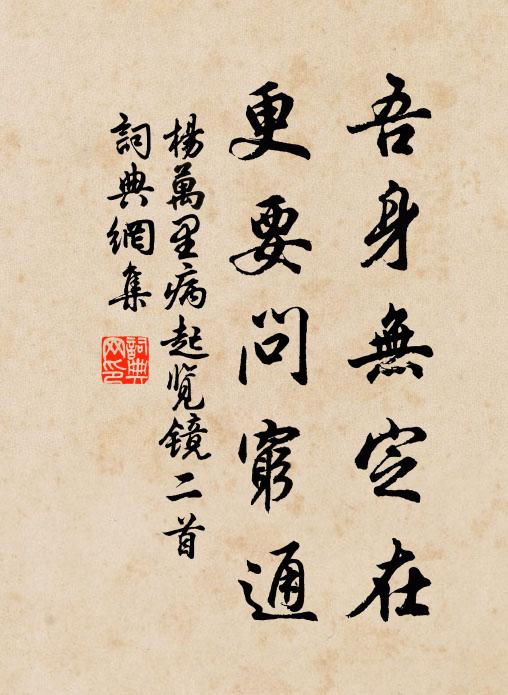 吾身無定在
更要問窮通
楊萬里病起覽镜二首
詞典網集
詞典網印